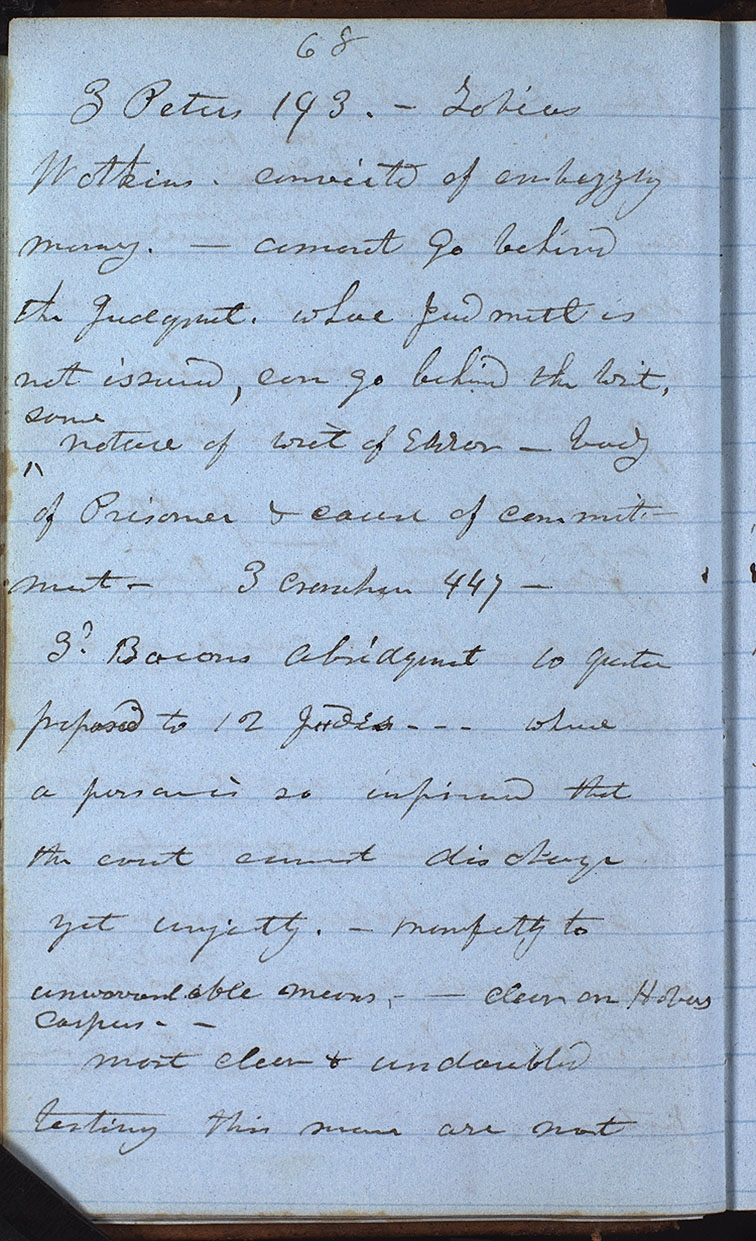 68
3 Peters 193. — Tobias
Watkins. convicted of embezzling
money. — cannot go behind
the Judgment. whare Judment is
not issued, can go behind the Writ,
some
nature of writ of Error — body
of Prisoner & cause of commit-
ment — 3 Cranchan 447 —
3d Bacons Abridgment 10 questn
proposed to 12 Judges - - - where
a person is so imprisoned that
the court cannot discharge
yet unjustly. — manifestly to
unwarrantable means, - — clear on Habeas
Corpus - -
most clear & undoubted
testimy this means are not